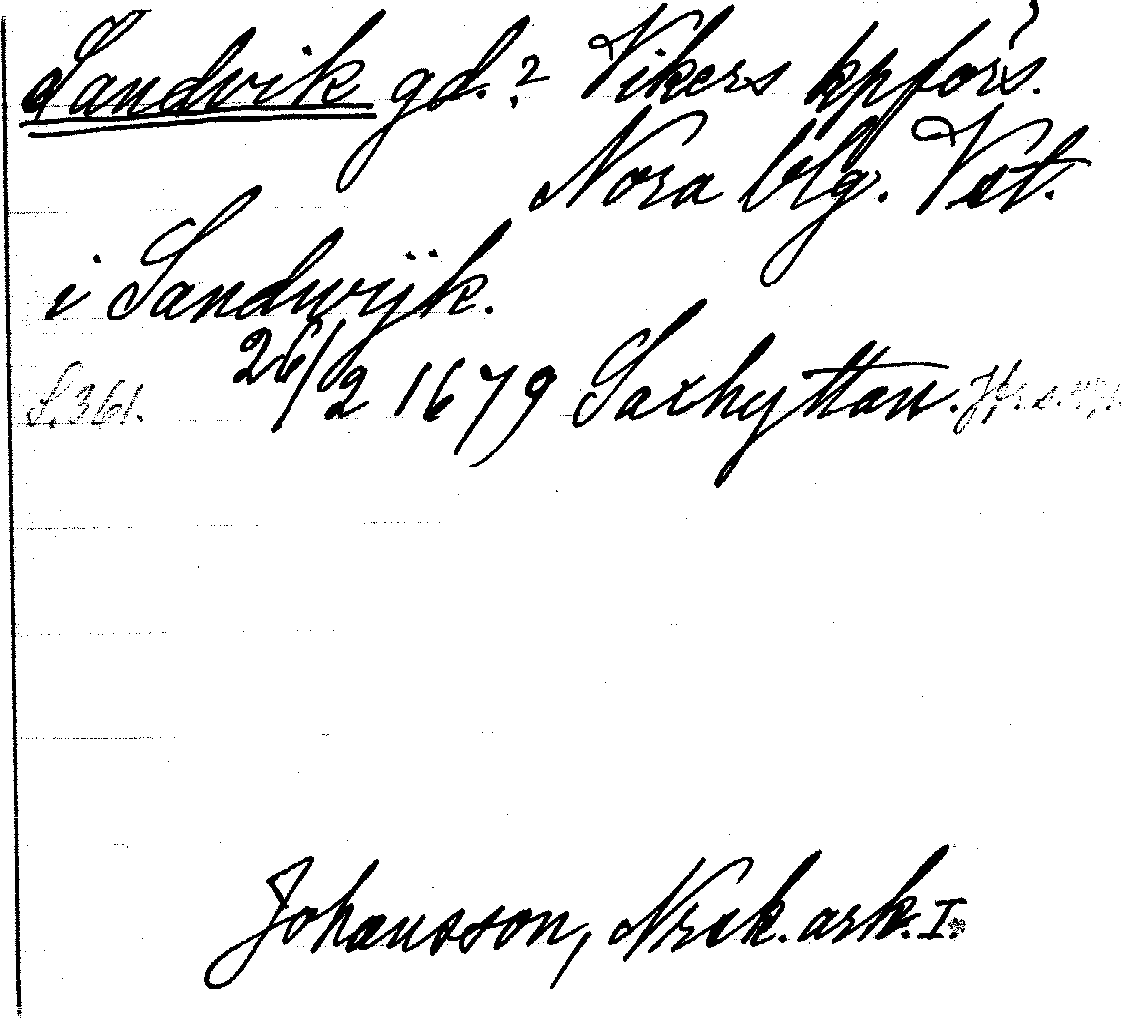 Sandvik gd.? Vikers kpförs.
Nora blg. Vst.
i Sandwijk.
S. 361. 26/2 1679 Saxhyttan. Jfr. s.
Johansson, Noraskog. ark. I.